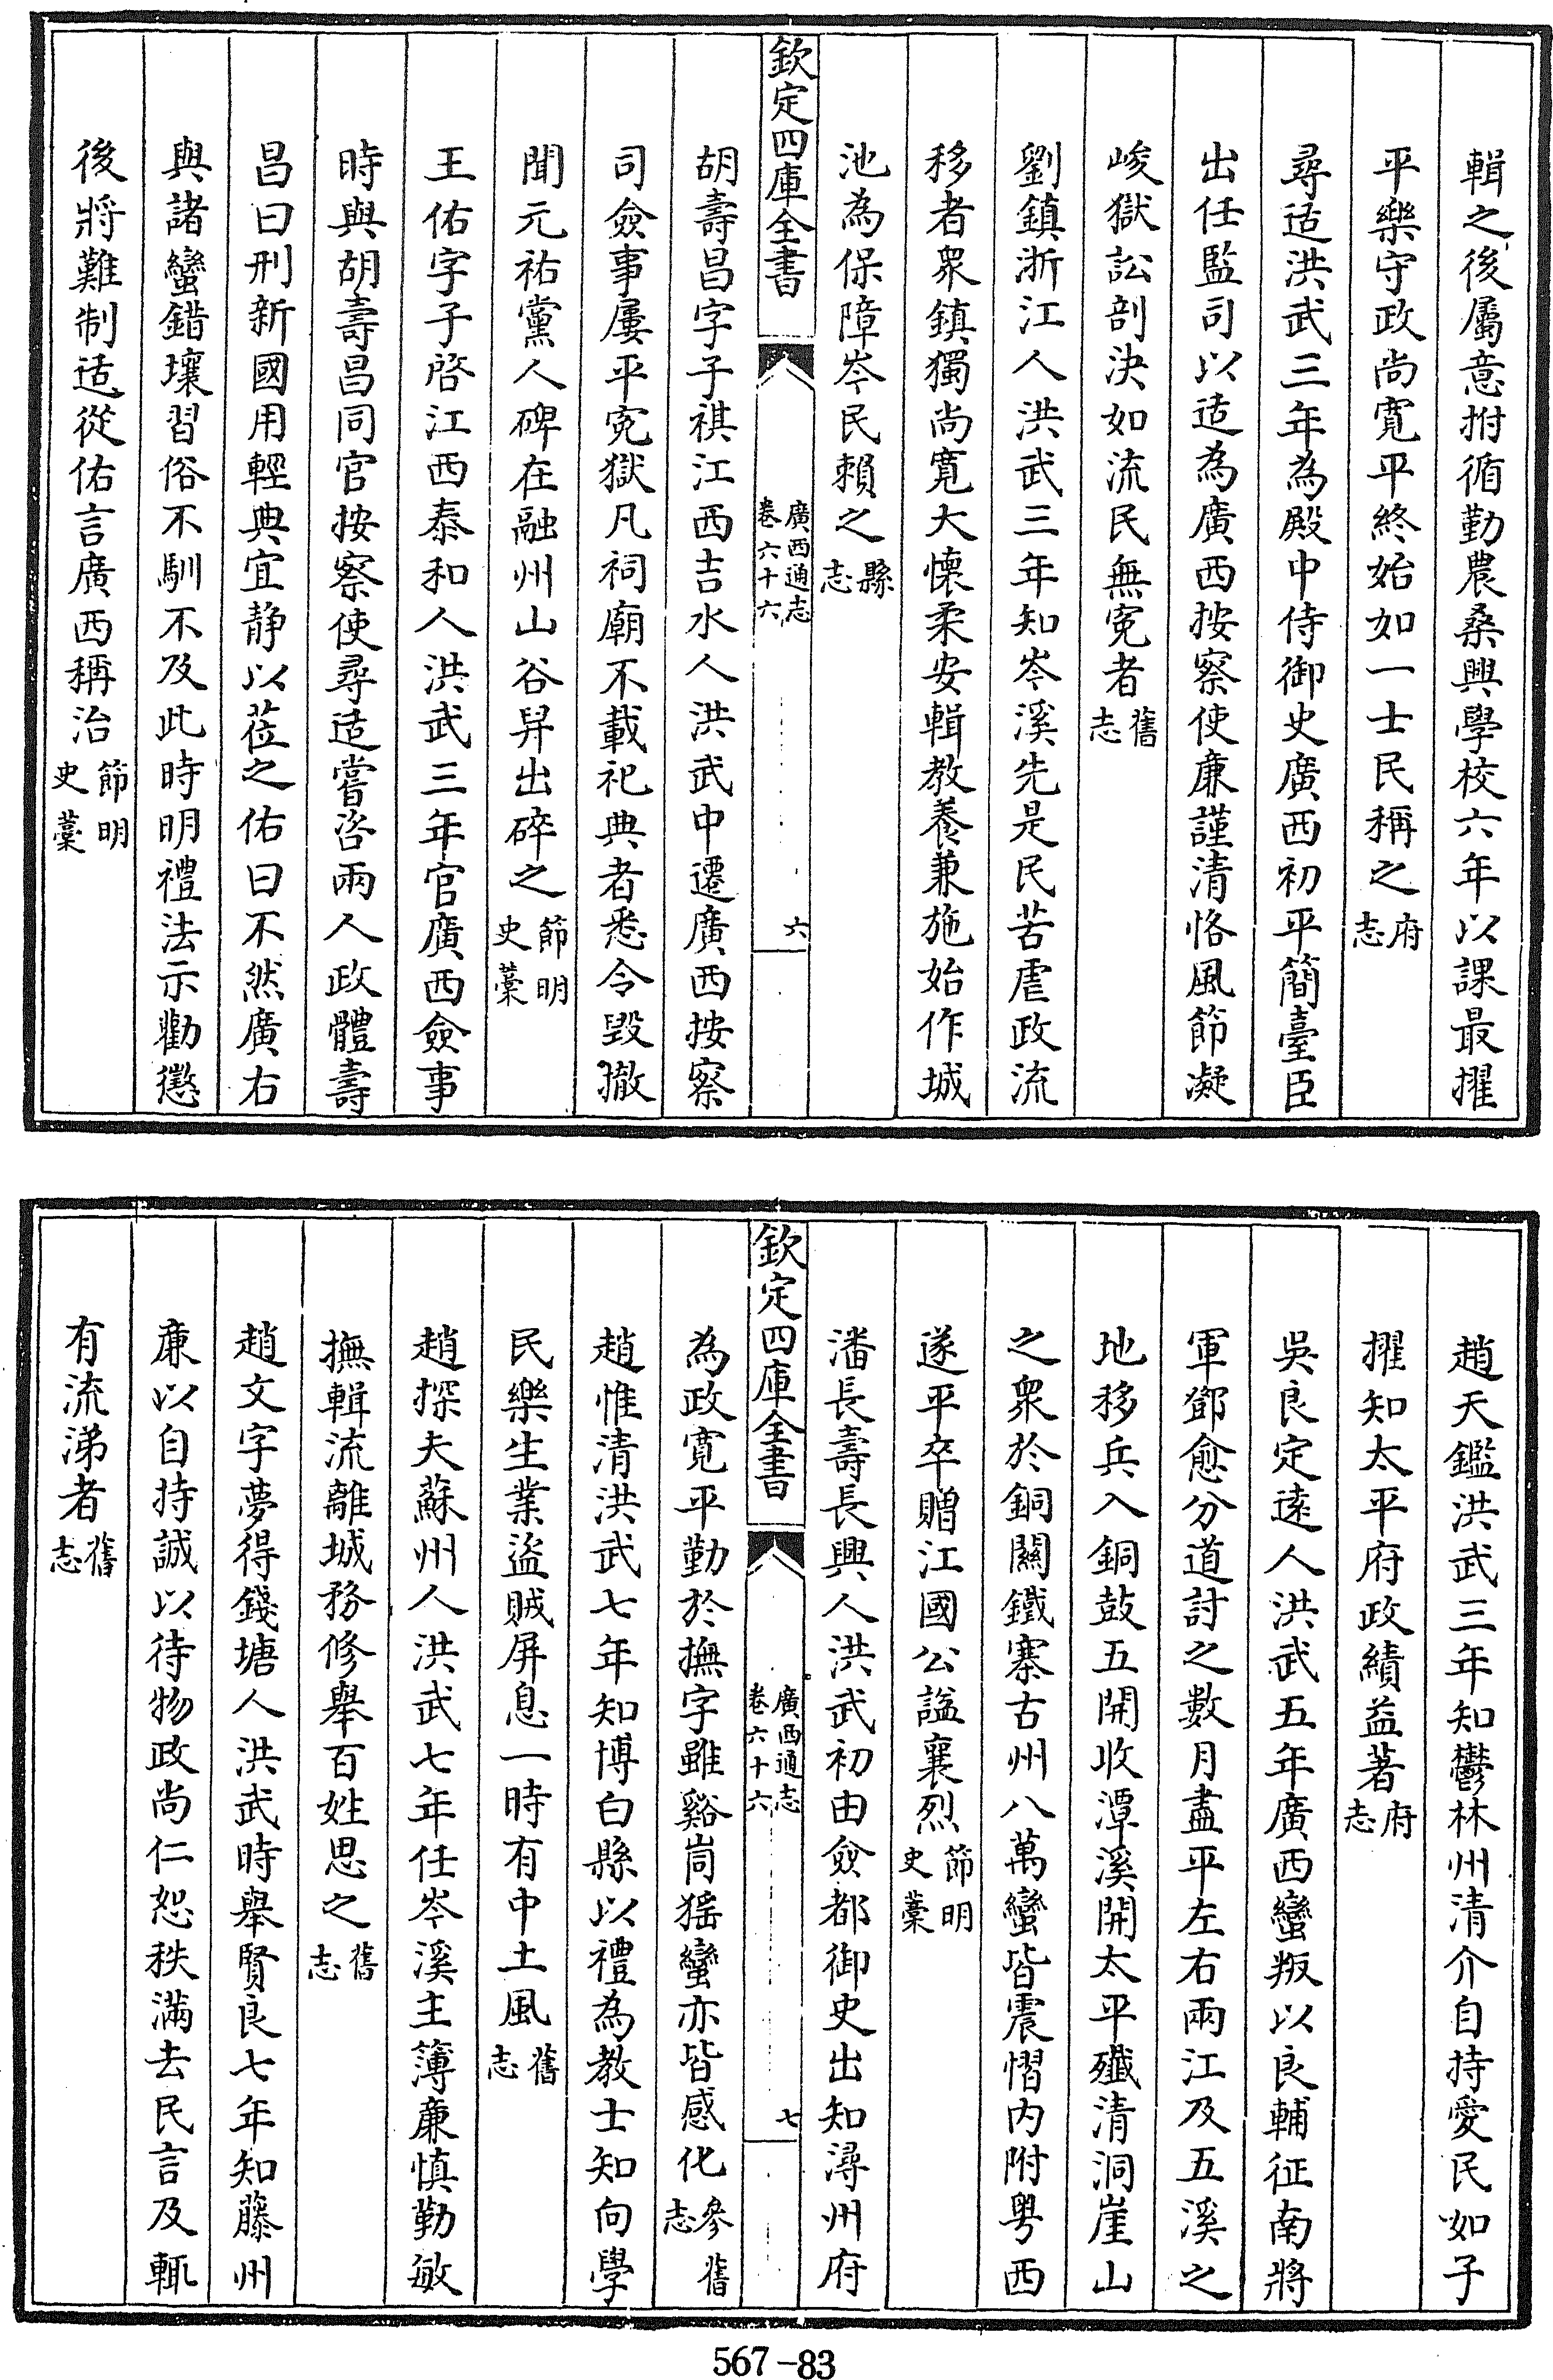 輯之後屬意拊循勤農桑興學校六年以課最擢
平樂守政尚寬平終始如一士民稱之府志
尋适洪武三年為殿中侍御史廣西初平簡臺臣
出任監司以适為廣西按察使廉謹清恪風節凝
峻獄訟剖決如流民無寃者舊志
劉鎮浙江人洪武三年知岑溪先是民苦虐政流
移者衆鎮獨尚寬大懷柔安輯教養兼施始作城
池為保障岑民賴之縣志
欽定四庫全書
廣西通志
卷六十六
六
胡壽昌字子祺江西吉水人洪武中遷廣西按察
司僉事屢平寃獄凡祠廟不載祀典者悉令毀撤
聞元祐黨人碑在融州山谷舁出碎之節明史藁
王佑字子啓江西泰和人洪武三年官廣西僉事
時與胡壽昌同官按察使尋适嘗咨兩人政體壽
昌曰刑新國用輕典宜靜以莅之佑曰不然廣右
與諸蠻錯壤習俗不馴不及此時明禮法示勸懲
後將難制适從佑言廣西稱治節明史藁
趙天鑑洪武三年知鬱林州清介自持愛民如子
擢知太平府政績益著府志
吳良定遠人洪武五年廣西蠻叛以良輔征南將
軍鄧愈分道討之數月盡平左右兩江及五溪之
地移兵入銅鼓五開收潭溪開太平殲清洞崖山
之衆於銅關鐵寨古州八萬蠻皆震慴内附粤西
遂平卒贈江國公諡襄烈節明史藁
潘長壽長興人洪武初由僉都御史出知潯州府
欽定四庫全書
廣西通志
卷六十六
七
為政寬平勤於撫字雖谿峝猺蠻亦皆感化參舊志
趙惟清洪武七年知博白縣以禮為教士知向學
民樂生業盜賊屏息一時有中土風舊志
趙探夫蘇州人洪武七年任岑溪主簿廉慎勤敏
撫輯流離城務修舉百姓思之舊志
趙文字夢得錢塘人洪武時舉賢良七年知藤州
廉以自持誠以待物政尚仁恕秩滿去民言及輒
有流涕者舊志
567-83